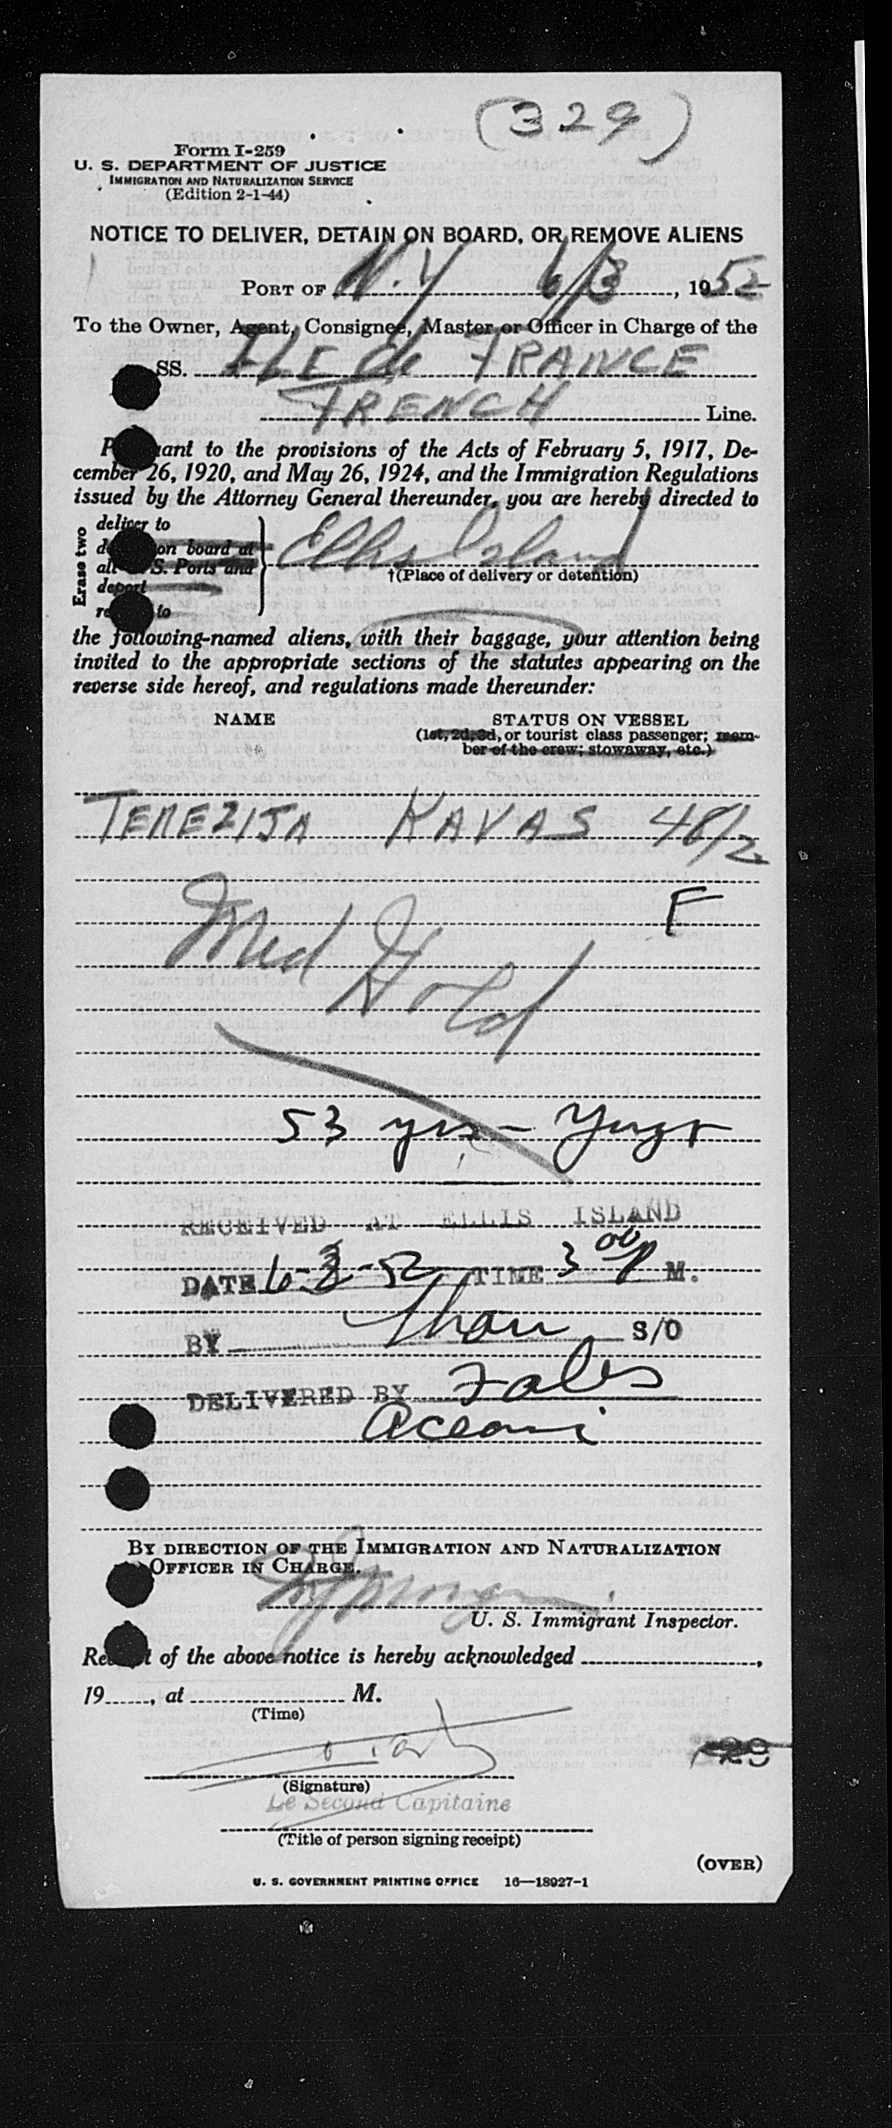 (329)
Form I-259
U. S. DEPARTMENT OF JUSTICE
IMMIGRATION AND NATURALIZATION SERVICE
(Edition 2-1-44)
NOTICE TO DELIVER, DETAIN ON BOARD, OR REMOVE ALIENS
PORT OF N.Y 6/3, 1952
To the Owner, Agent, Consignee, Master or Officer in Charge of the
SS. ILE de FRANCE
FRENCH Line.
to the provisions of the Acts of February 5, 1917, De-
cember 26, 1920, and May 26, 1924, and the Immigration Regulations
issued by the Attorney General thereunder, you are hereby directed to
Erase two
deliver to
on board at
S. Ports and
deport
to
Ellis Island
†(Place of delivery or detention)
the following-named aliens, with their baggage, your attention being
invited to the appropriate sections of the statutes appearing on the
reverse side hereof, and regulations made thereunder:
NAME STATUS ON VESSEL
(1st, 2d, 3d, or tourist class passenger; mem-
ber of the crew; stowaway, etc.)
TEREZIJA KAVAS 48/2
F
Med Hold
53 yrs - Yugo
RECEIVED AT ELLIS ISLAND
DATE 6-3-52 TIME 3 00 P M.
BY S/O
DELIVERED BY
BY DIRECTION OF THE IMMIGRATION AND NATURALIZATION
OFFICER IN CHARGE.
U. S. Immigrant Inspector.
of the above notice is hereby acknowledged ,
19 , at M.
(Time)
(Signature)
Le Second Capitaine
(Title of person signing receipt)
(OVER)
U. S. GOVERNMENT PRINTING OFFICE 16—18927-1